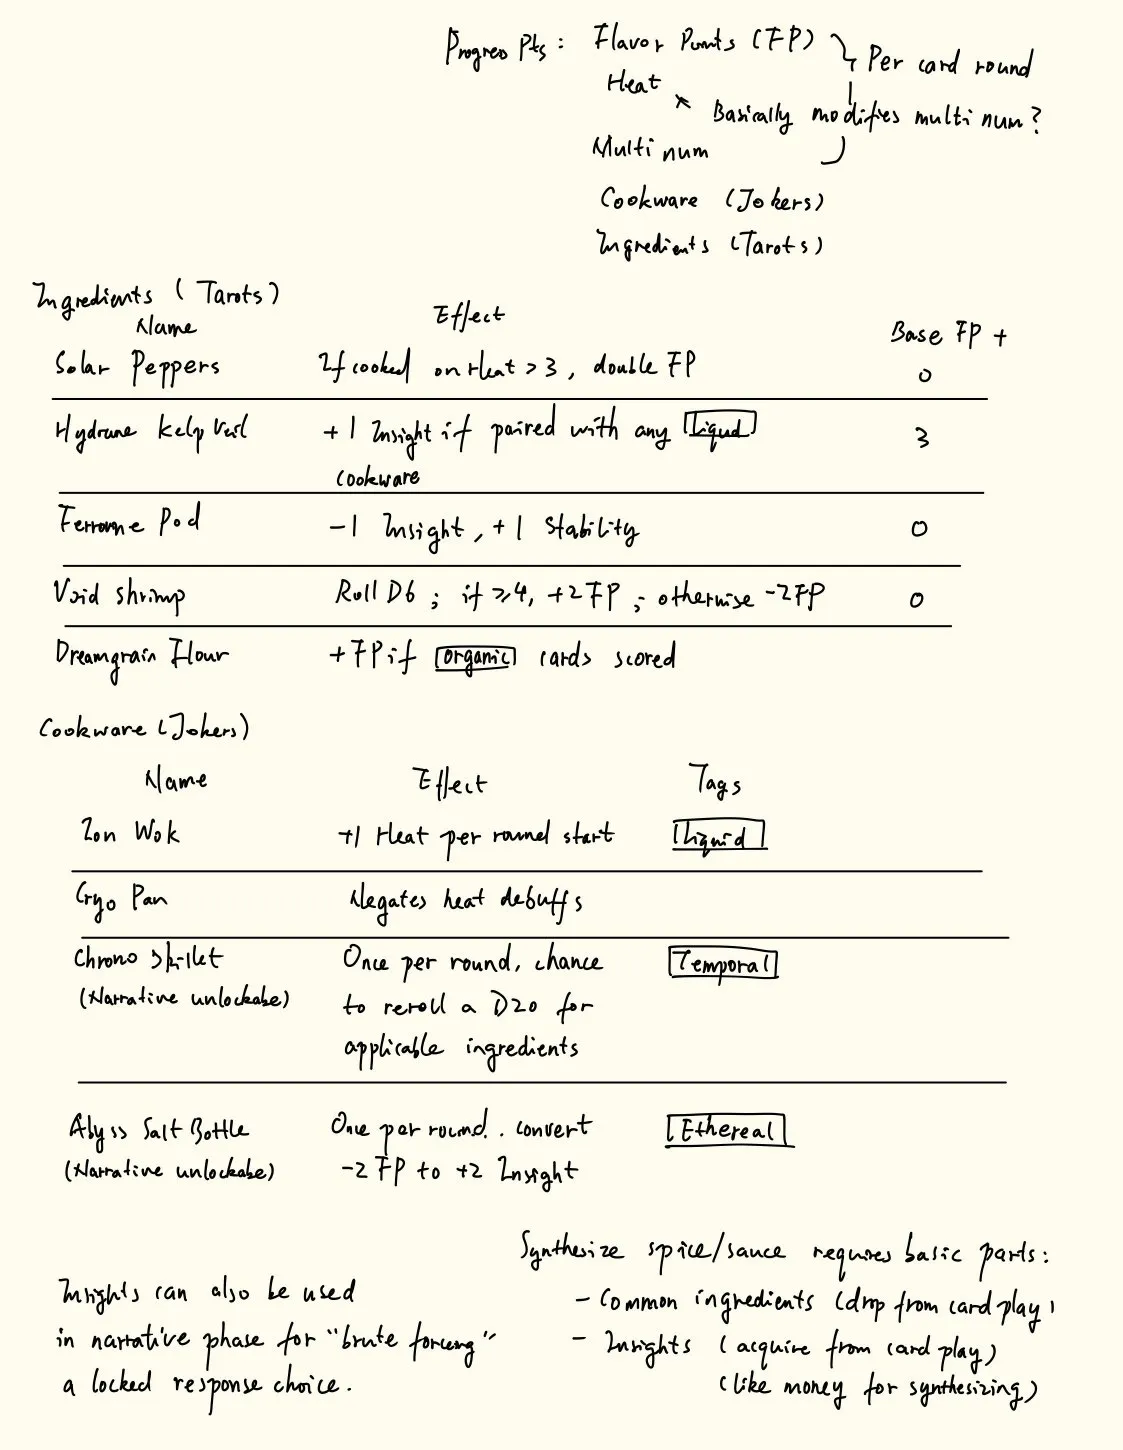 Progress Pts: Flavor Points (FP)
Per card round
Heat
Basically modifies multi num?
Multi num
Cookware (Jokers)
Ingredients (Tarots)
Ingredients (Tarots)
Name Effect Base FP +
Solar Peppers If cooked on Heat > 3, double FP 0
Kelp Veil + 1 Insight if paired with any [Liquid] 3
cookware
Pod -1 Insight, +1 Stability 0
Void shrimp Roll D6; if ≥4, +2FP; otherwise -2FP 0
Dreamgrain Flour +FP if [organic] cards scored
Cookware (Jokers)
Name Effect Tags
Ion Wok +1 Heat per round start [Liquid]
Cryo Pan Negates heat debuffs
Chrono Skillet Once per round, chance [Temporal]
(Narrative unlockabe) to reroll a D20 for
applicable ingredients
Abyss Salt Bottle Once per round. convert [Ethereal]
(Narrative unlockabe) -2 FP to +2 Insight
Synthesize spice/sauce requires basic parts:
- Common ingredients (drop from card play)
- Insights (acquire from card play)
(like money for synthesizing)
Insights can also be used
in narrative phase for "brute forcing"
a locked response choice.